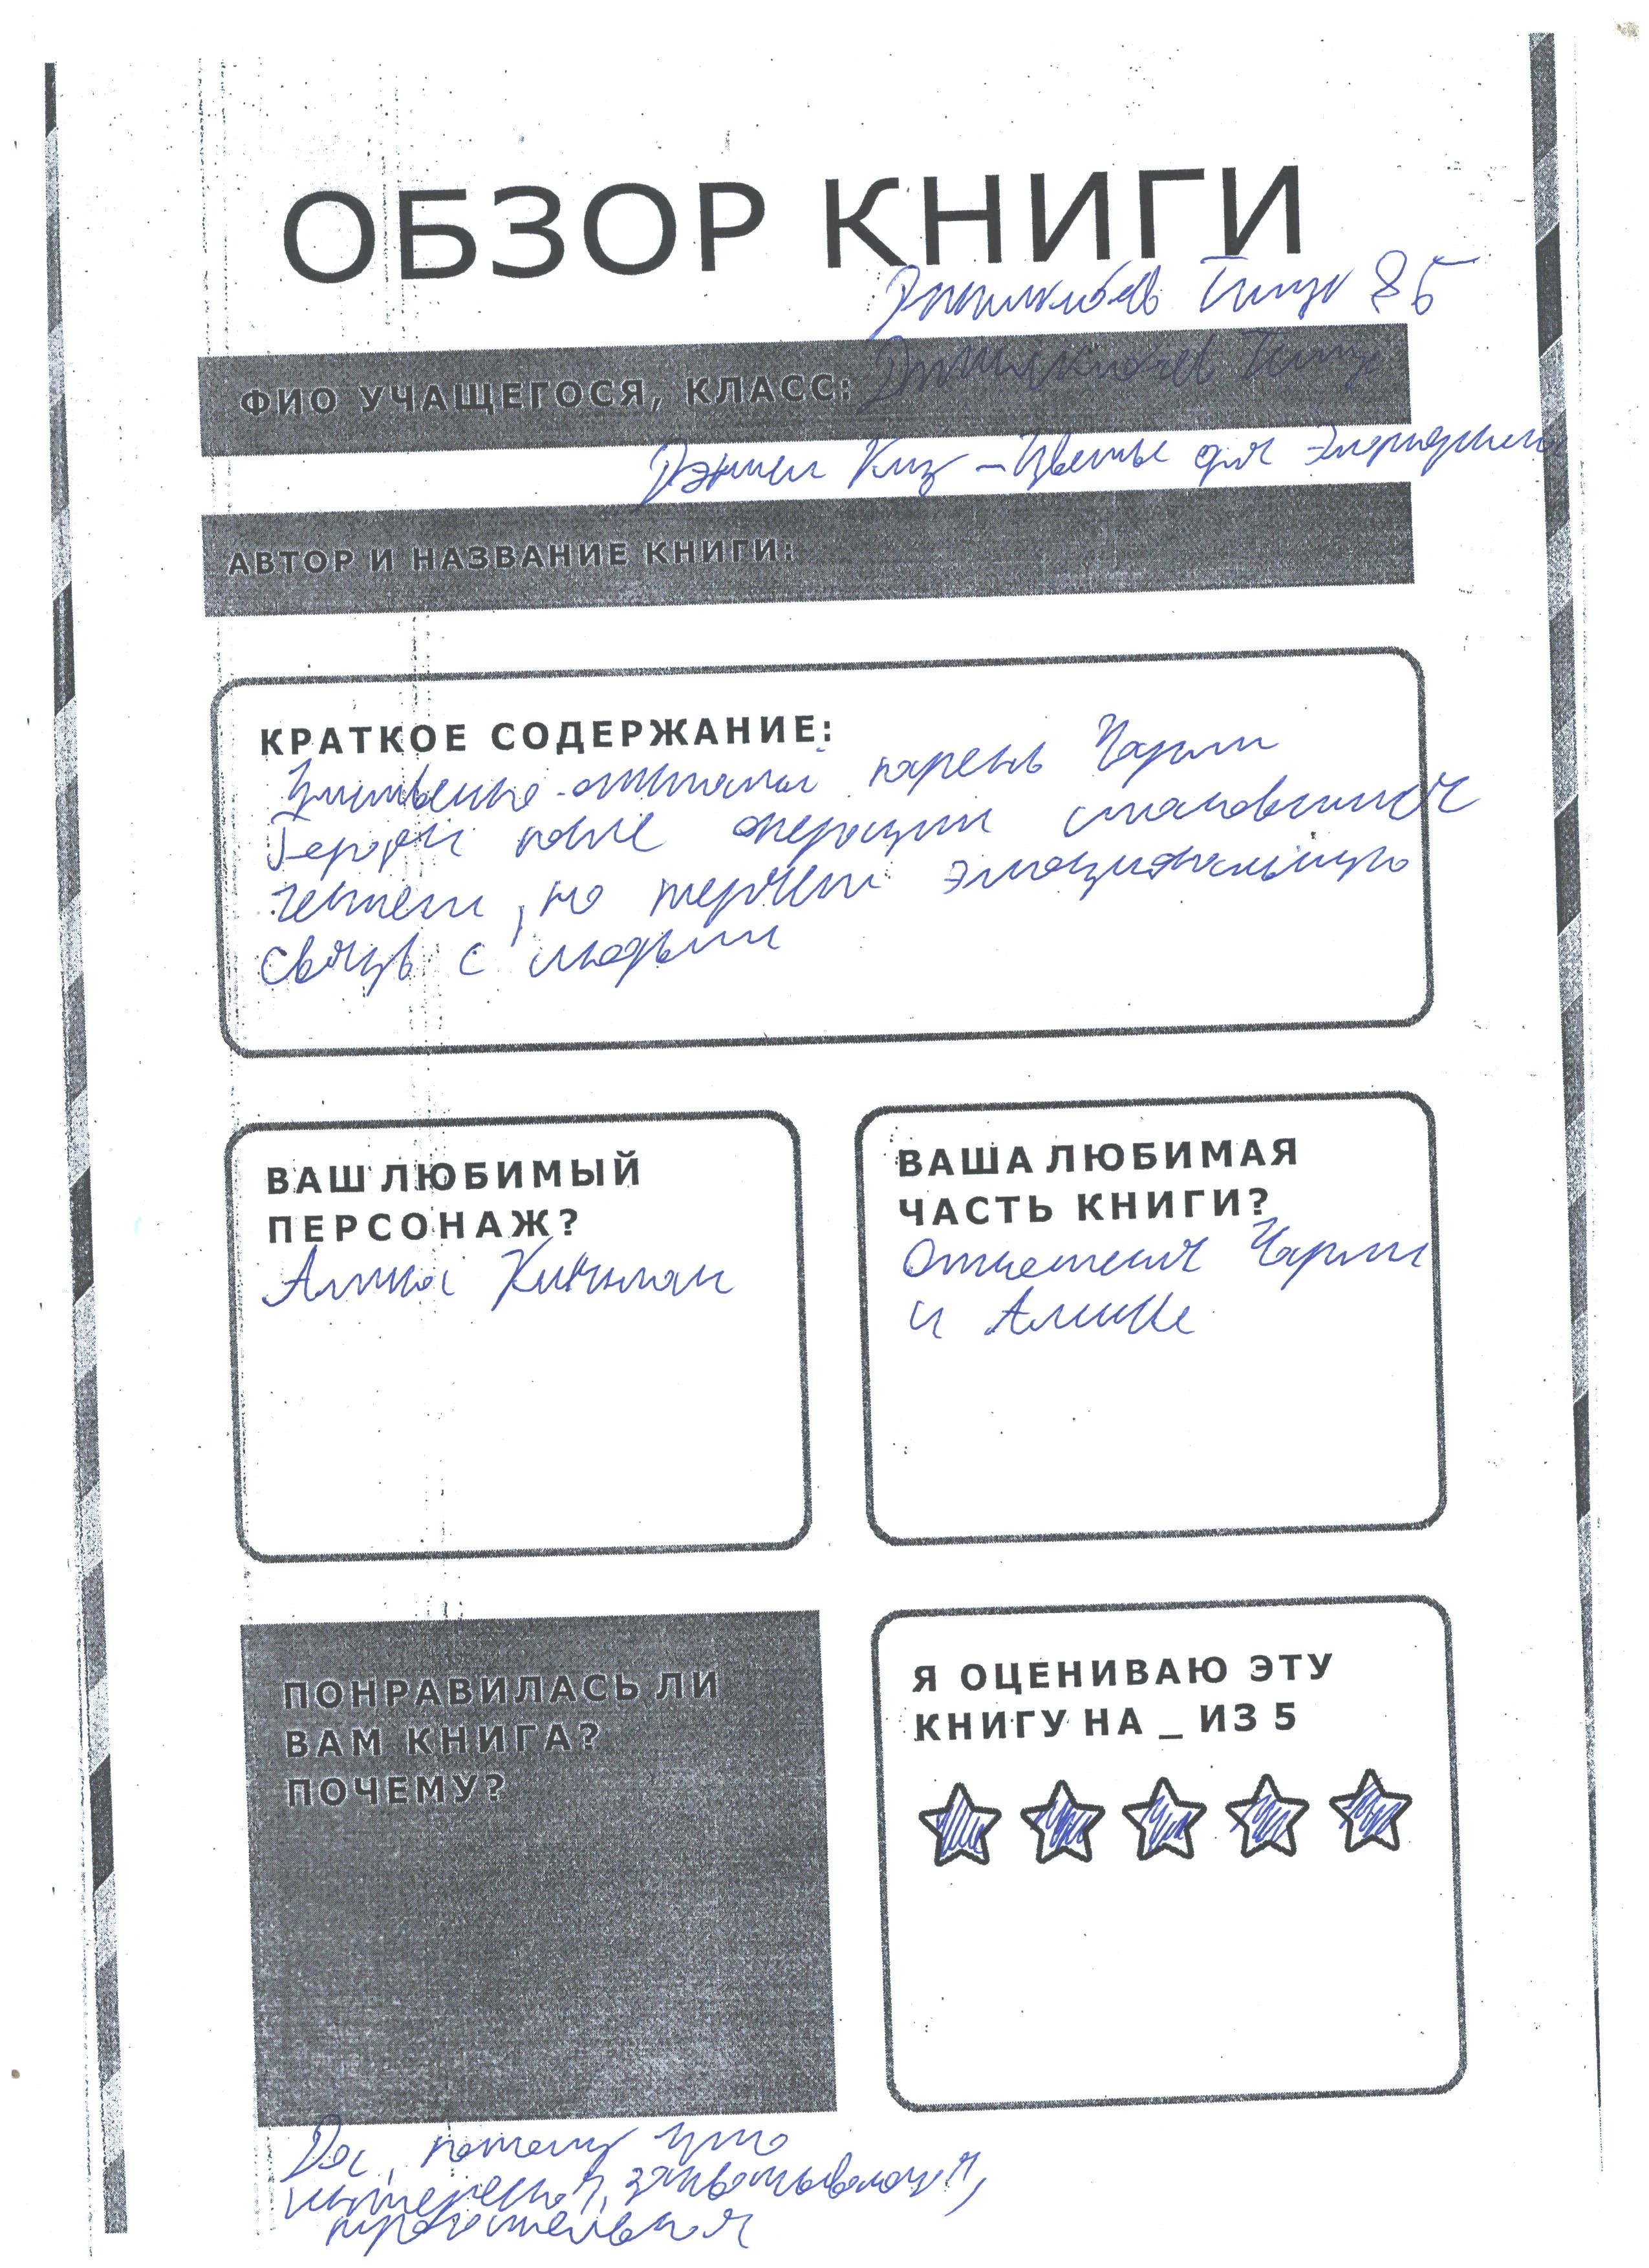 ОБЗОР КНИГИ
8 Б
ФИО УЧАЩЕГОСЯ, КЛАСС:
Дэниел Киз – Цветы для Элджернона
АВТОР И НАЗВАНИЕ КНИГИ:
КРАТКОЕ СОДЕРЖАНИЕ:
Умственно-отсталый парень Чарли
Гордон после операции становится
гением, но теряет эмоциональную
связь с людьми
ВАШ ЛЮБИМЫЙ
ПЕРСОНАЖ?
Алиса Кинниан
ВАША ЛЮБИМАЯ
ЧАСТЬ КНИГИ?
Отношения Чарли
и Алисы
ПОНРАВИЛАСЬ ЛИ
ВАМ КНИГА?
ПОЧЕМУ?
Я ОЦЕНИВАЮ ЭТУ
КНИГУ НА _ ИЗ 5
Да, потому что
интересная, захватывающая,
трогательная